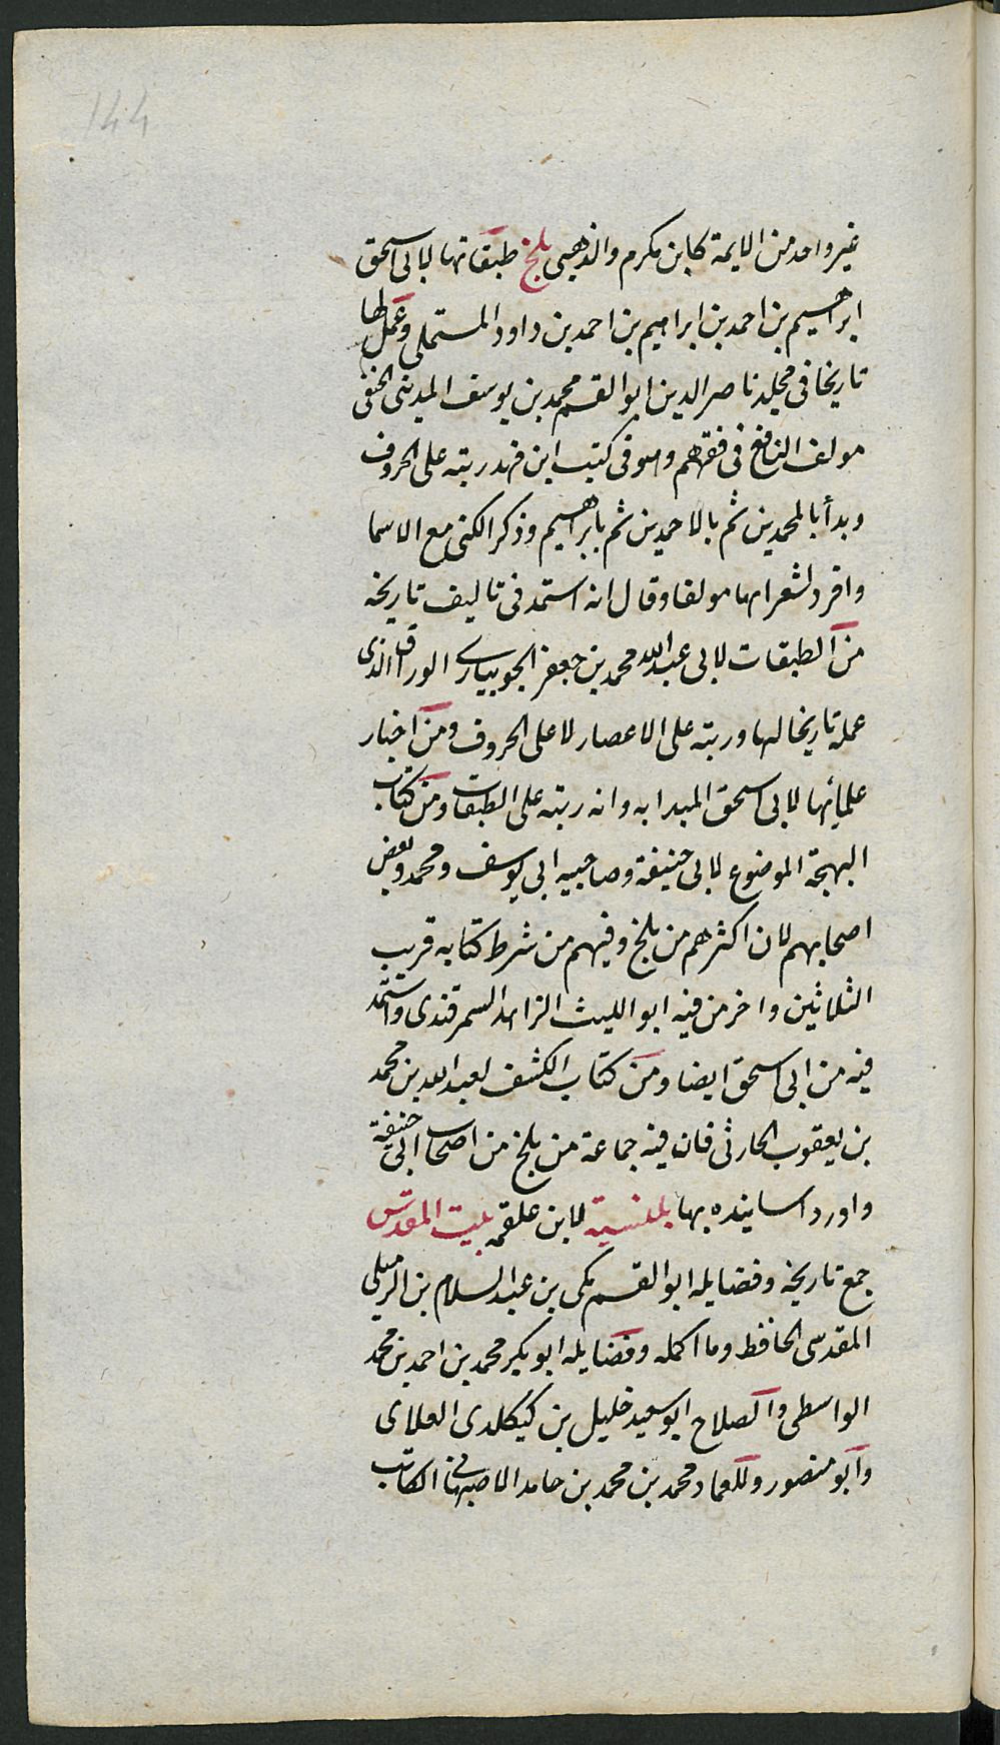 144
غير واحد من الايمة كابن مكرم والذهبى بلخ طبقاتها لابى اسحق
ابراهيم بن احمد بن ابراهيم بن احمد بن داود المستملى وعمل لها
تاريخا فى مجلد ناصر الدين ابو القسم محمد بن يوسف المدينى الحنفى
مولف النافع فى فقههم وهو فى كتب ابن فهد رتبه على الحروف
وبدأ بالمحمدين ثم بالاحمدين ثم بابراهيم وذكر الكنى مع الاسما
وافرد لشعرائها مولفا وقال انه استمد فى تاليف تاريخه
من الطبقات لابى عبد الله محمد بن جعفر الجويبارى الوراق الذى
عمله تاريخا لها ورتبه على الاعصار لا على الحروف ومن اخبار
علمائها لابى اسحق المبدا به وانه رتبه على الطبقات ومن كتاب
البهجة الموضوع لابى حنيفة وصاحبيه ابى يوسف ومحمد وبعض
اصحابهم لان اكثرهم من بلخ وفيهم من شرط كتابه قريب
الثلاثين واخر من فيه ابو الليث الزاهد السمرقندى واستمد
فيه من ابى اسحق ايضا ومن كتاب الكشف لعبد الله بن محمد
بن يعقوب الحارثى فان فيه جماعة من بلخ من اصحاب ابى حنيفة
واورد اسانيده بها بلنسية لابن علقمه بيت المقدس
جمع تاريخه وفضايله ابو القسم مكى بن عبد السلام بن الرميلى
المقدسى الحافظ وما اكمله وفضايله ابو بكر محمد بن احمد بن محمد
الواسطى والصلاح ابو سعيد خليل بن كيكلدى العلائى
وابو منصور وللعماد محمد بن محمد بن حامد الاصبهانى الكاتب